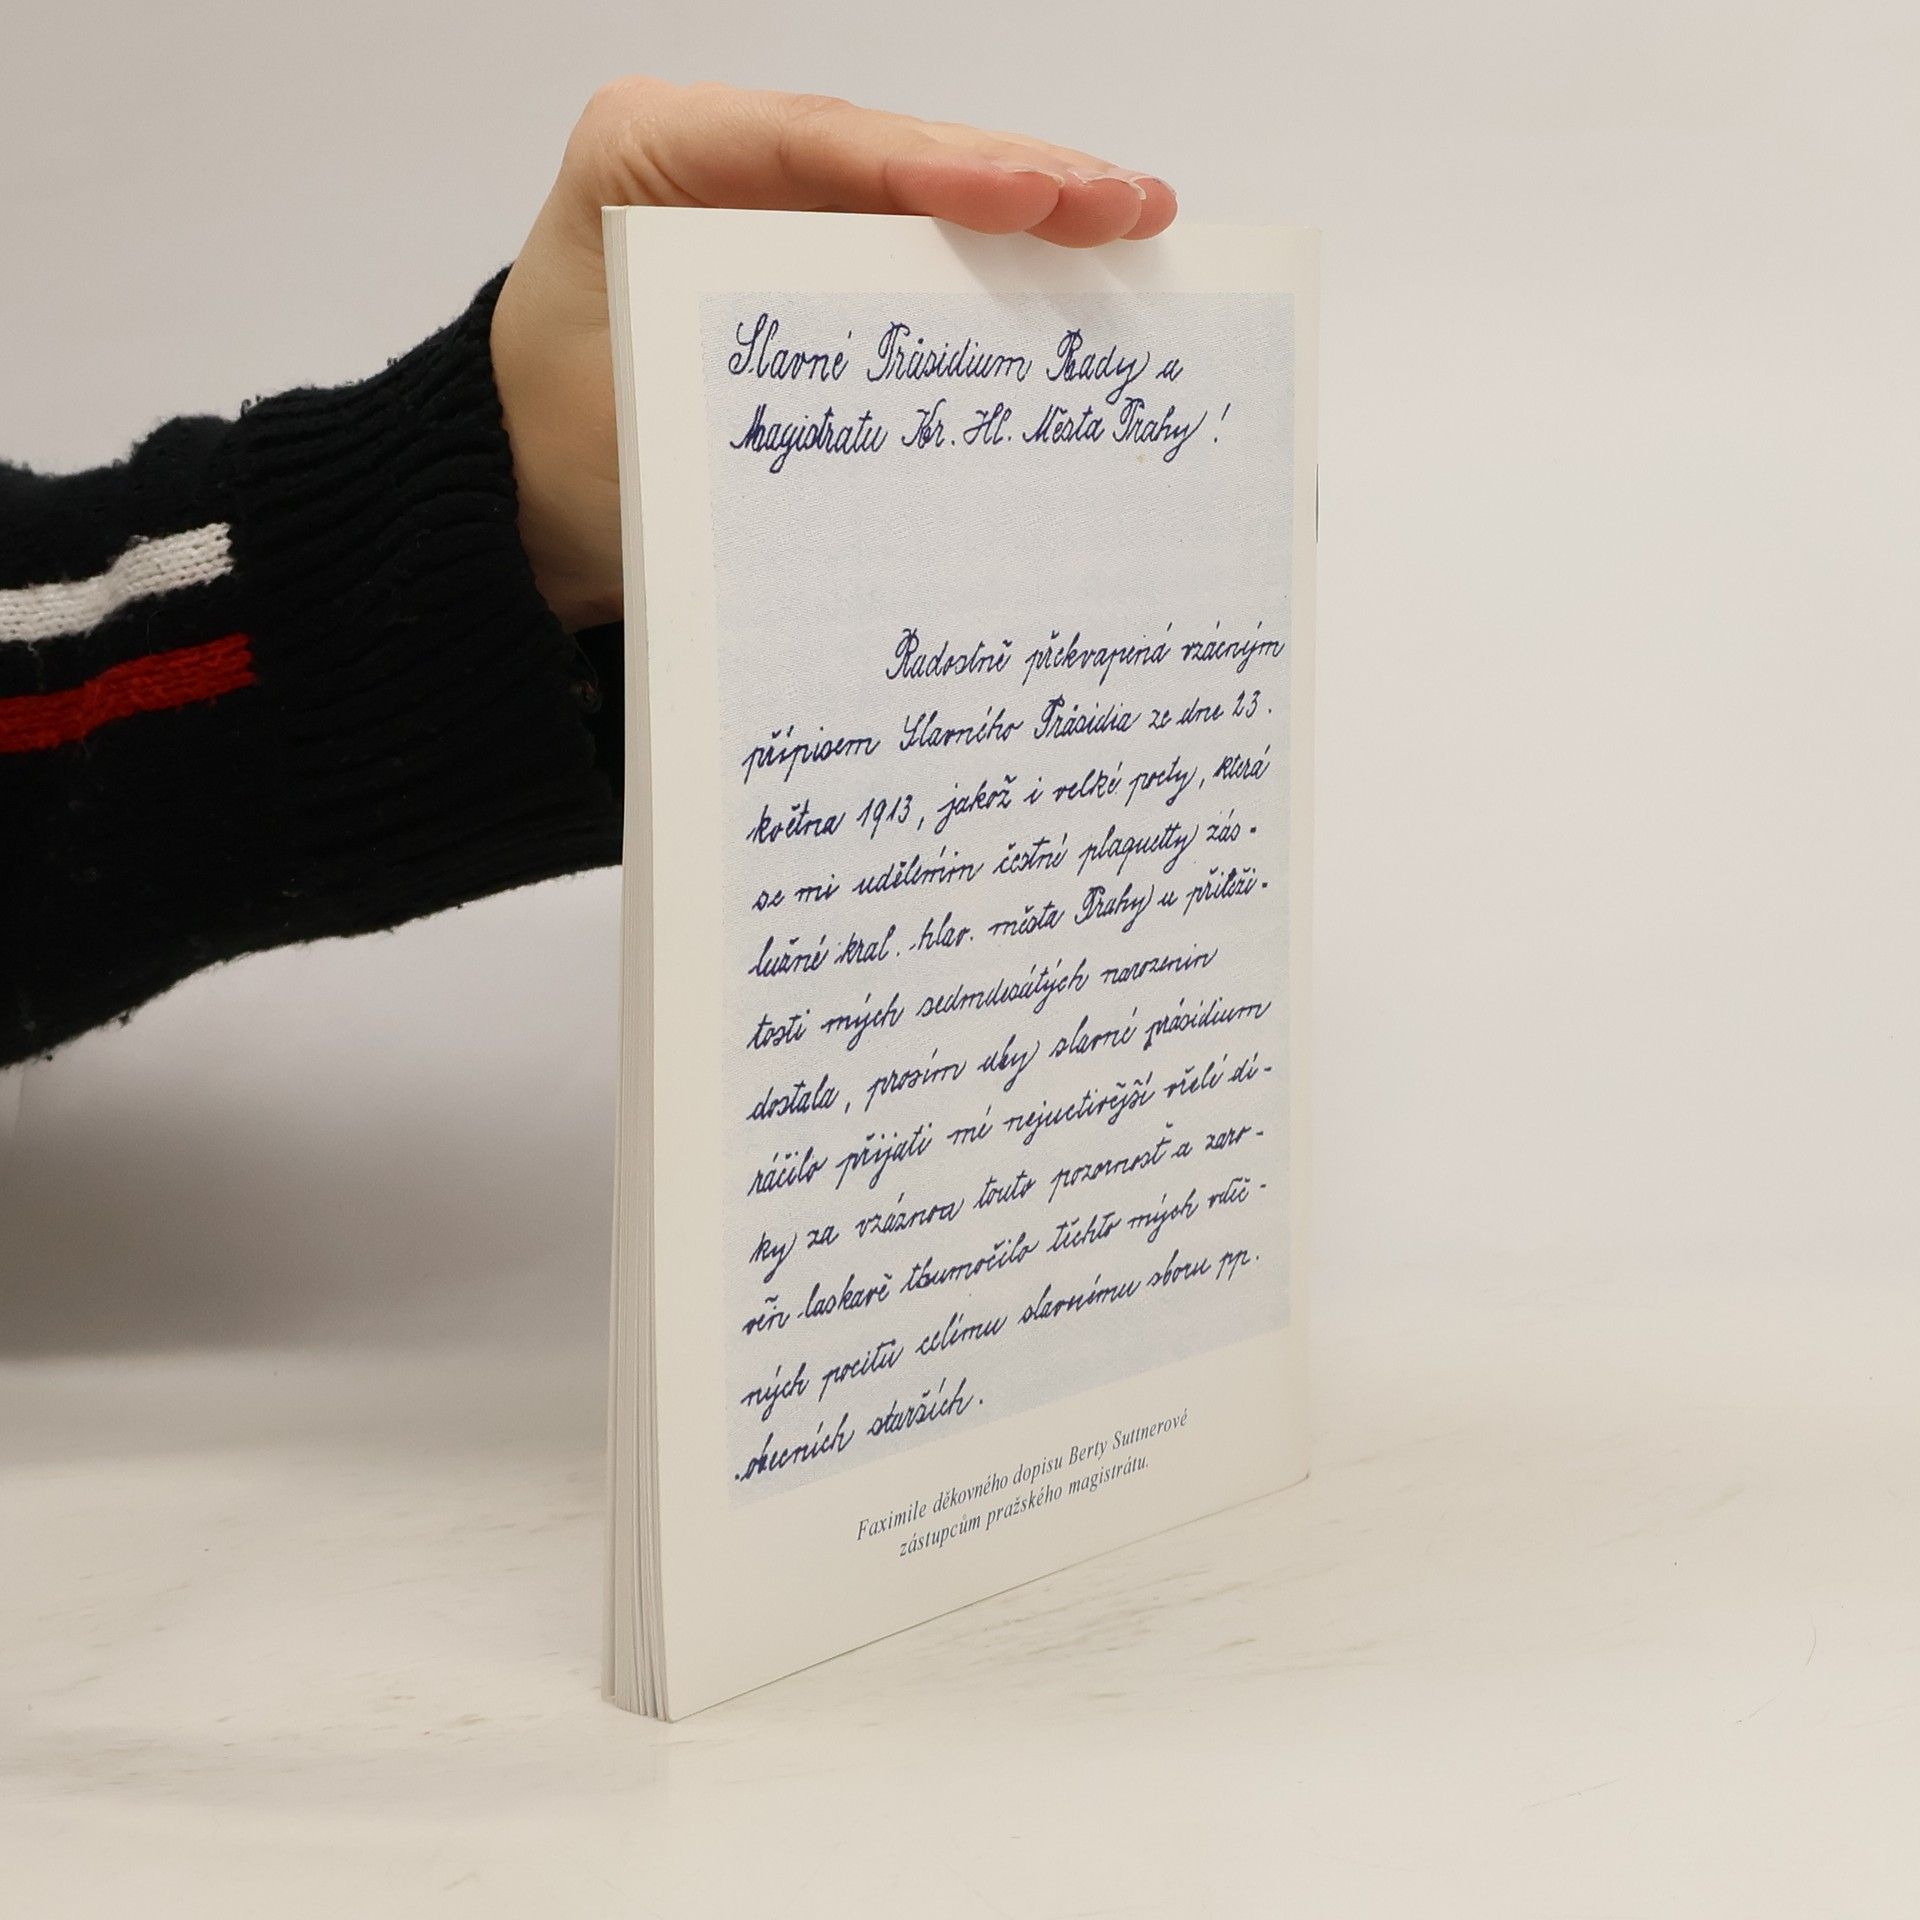 Slavné Präsidium Rady a
Magistratu Kr. Hl. Města Prahy!
Radostně překvapená vzácným
přípisem Slavného Präsidia ze dne 23.
května 1913, jakož i velké pocty, která
se mi udělením čestné plaquetty zás-
lužné kral. hlav. města Prahy u příleži-
tosti mých sedmdesátých narozenin
dostala, prosím aby slavné präsidium
ráčilo přijati mé nejuctivější vřelé dí-
ky za vzáznou touto pozornosť a zaro-
věň laskavě tlumočilo těchto mých vděč-
ných pocitů celému slavnému sboru pp.
obecních starších.
Faximile děkovného dopisu Berty Suttnerové
zástupcům pražského magistrátu.